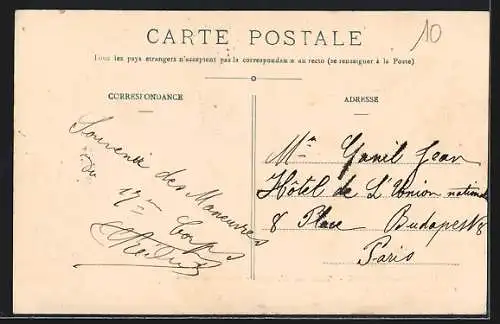 CARTE POSTALE
10
Tous les pays étrangers n'acceptent pas la correspondance au recto (se renseigner à la Poste)
CORRESPONDANCE
Souvenir des Manœuvres
du
17me Corps
ADRESSE
Mr Jean
Hôtel de L'Union nationale
8 Place Budapest 8
Paris